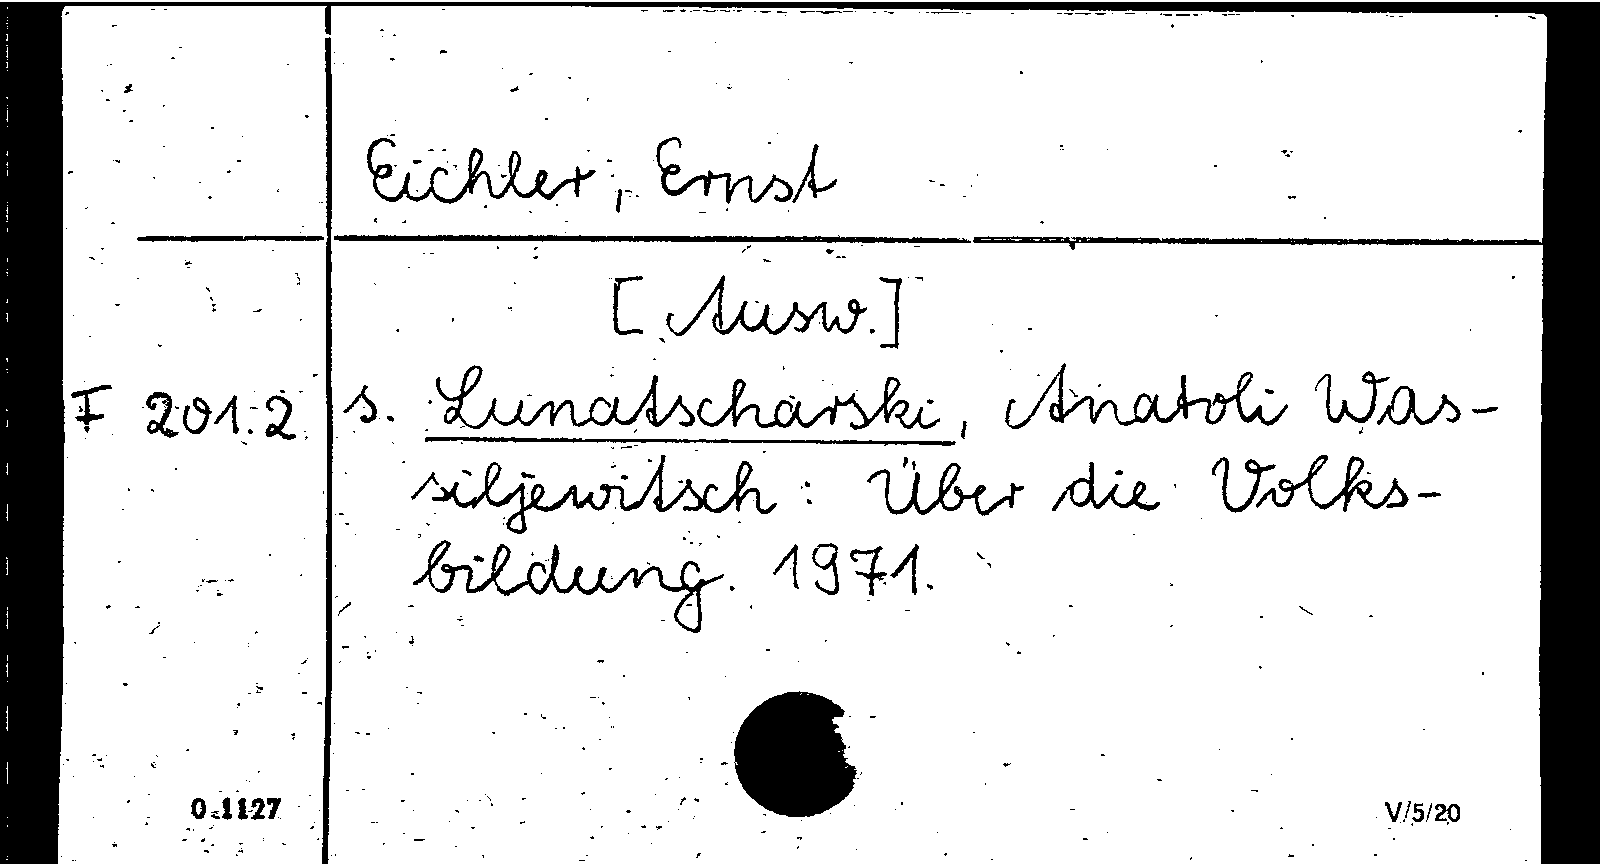 Eichler, Ernst
[Ausw.]
F 201.2 s. Lunatscharski, Anatoli Was-
siljewitsch: Über die Volks-
bildung. 1971.
0.1127 V/5/20